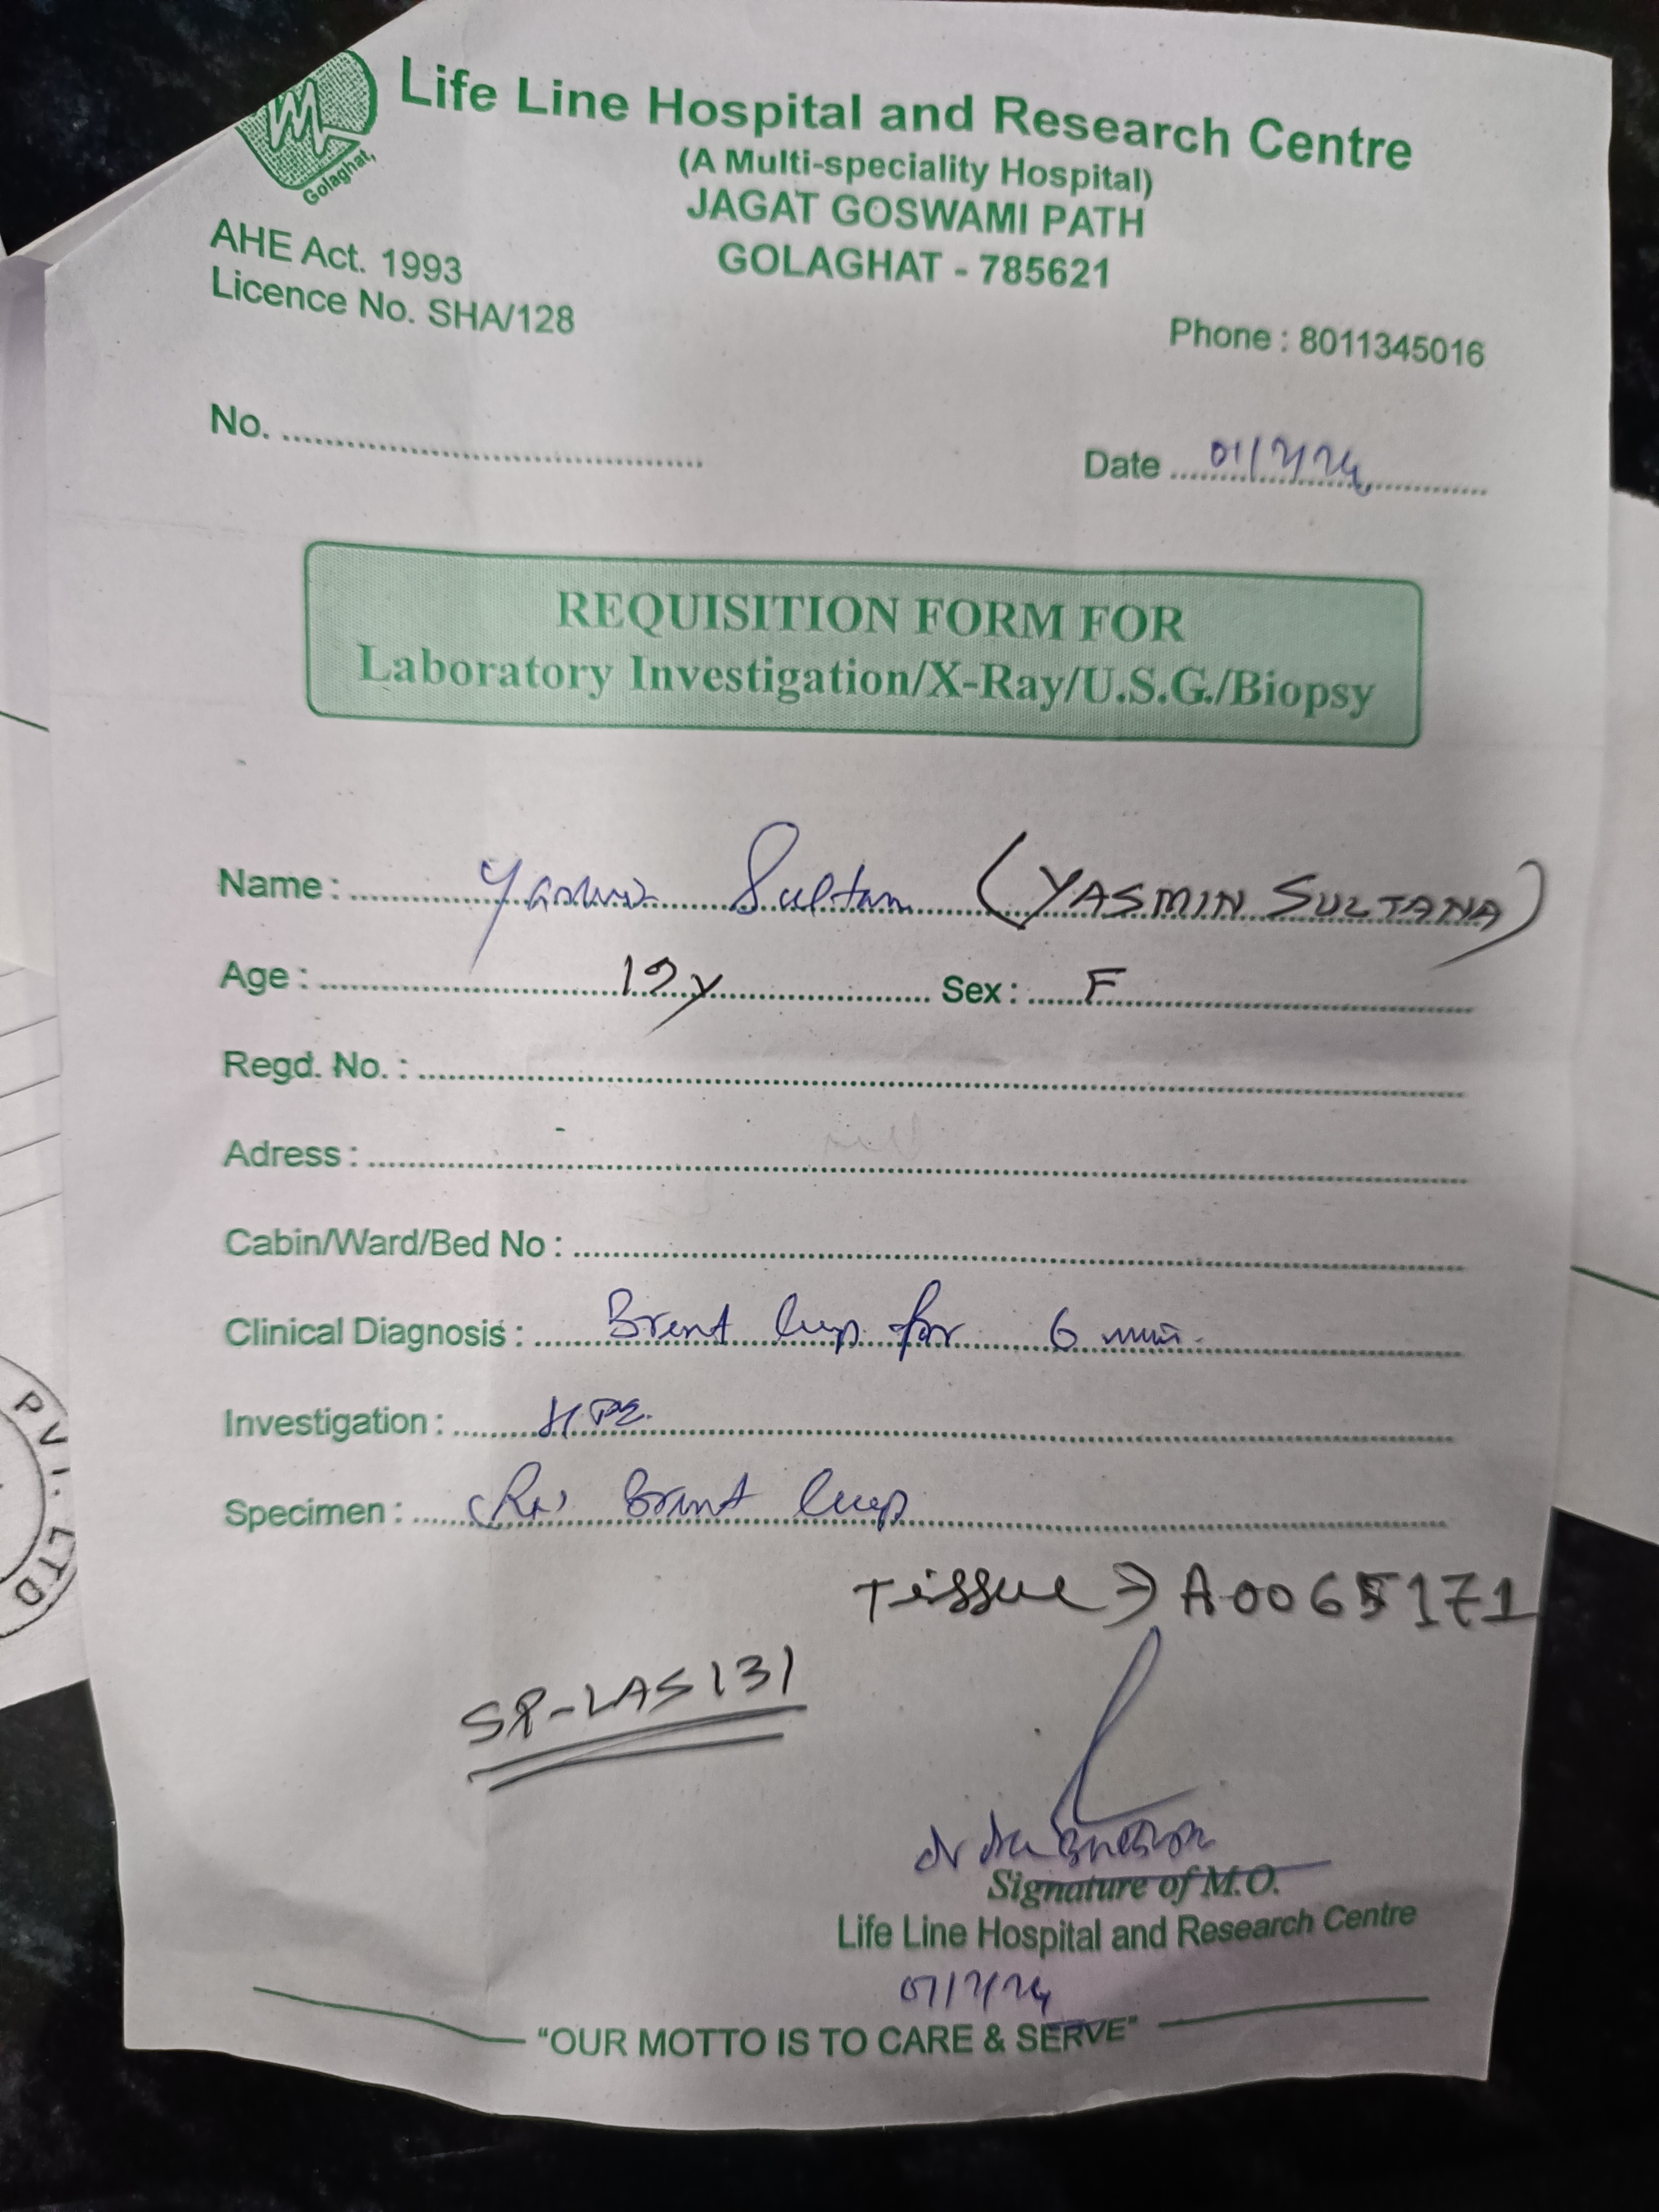 Golaghat,
Life Line Hospital and Research Centre
(A Multi-speciality Hospital)
JAGAT GOSWAMI PATH
GOLAGHAT - 785621
AHE Act. 1993
Licence No. SHA/128
Phone : 8011345016
No.
Date 01/7/24
REQUISITION FORM FOR
Laboratory Investigation/X-Ray/U.S.G./Biopsy
Name : Yasmin Sultana (YASMIN SULTANA)
Age : 19y Sex : F
Regd. No. :
Adress :
Cabin/Ward/Bed No :
Clinical Diagnosis : Breast lump for 6
Investigation : HPE
Specimen : (Rt) Breast lump
Tissue → A0065171
SP-LAS131
Dr
Signature of M.O.
Life Line Hospital and Research Centre
01/7/24
"OUR MOTTO IS TO CARE & SERVE"
PVT. LTD